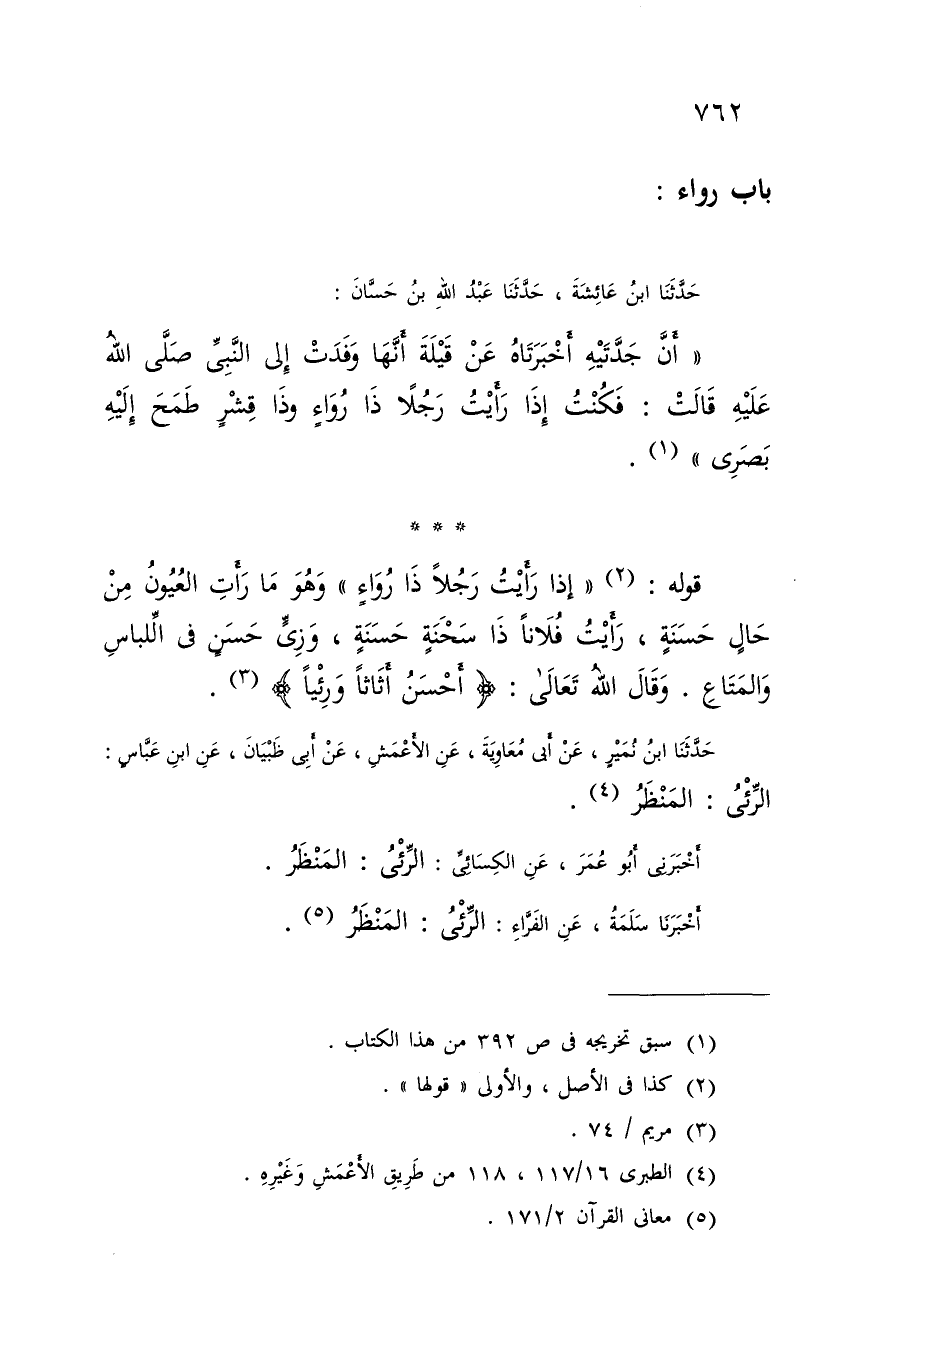 ٧٦٢
باب رواء :
حَدَّثَنَا ابنُ عَائِشَةَ ، حَدَّثَنَا عَبْدُ اللهِ بنُ حَسَّانَ :
« أَنَّ جَدَّتَيْهِ أَخْبَرَتَاهُ عَنْ قَيْلَةَ أَنَّهَا وَفَدَتْ إِلى النَّبِىِّ صَلَّى اللهُ
عَلَيْهِ قَالَتْ : فَكُنْتُ إِذَا رَأَيْتُ رَجُلًا ذَا رُوَاءٍ وذَا قِشْرٍ طَمَحَ إِلَيْهِ
بَصَرِى » (١) .
* * *
قوله : (٢) « إذا رَأَيْتُ رَجُلاً ذَا رُوَاءٍ » وَهُوَ مَا رَأَتِ العُيُونُ مِنْ
حَالٍ حَسَنَةٍ ، رَأَيْتُ فُلَاناً ذَا سَحْنَةٍ حَسَنَةٍ ، وَزِىٍّ حَسَنٍ فى الِّلباسِ
وَالمَتَاعِ . وَقَالَ اللهُ تَعَالَىٰ : ﴿ أَحْسَنُ أَثَاثاً وَرِئْياً ﴾ (٣) .
حَدَّثَنَا ابنُ نُمَيْرٍ ، عَنْ أَبى مُعَاوِيَةَ ، عَنِ الأَعْمَشِ ، عَنْ أَبِى ظَبْيَانَ ، عَنِ ابنِ عَبَّاسٍ :
الرِّئْىُ : المَنْظَرُ (٤) .
أَخْبَرَنِى أَبُو عُمَرَ ، عَنِ الكِسَائِىِّ : الرِّئْىُ : المَنْظَرُ .
أَخْبَرَنَا سَلَمَةُ ، عَنِ الفَرَّاءِ : الرِّئْىُ : المَنْظَرُ (٥) .
(١) سبق تخريجه فى ص ٣٩٢ من هذا الكتاب .
(٢) كذا فى الأصل ، والأولى « قولها » .
(٣) مريم / ٧٤ .
(٤) الطبرى ١١٧/١٦ ، ١١٨ من طَرِيقِ الأَعْمَشِ وَغَيْرِهِ .
(٥) معانى القرآن ١٧١/٢ .